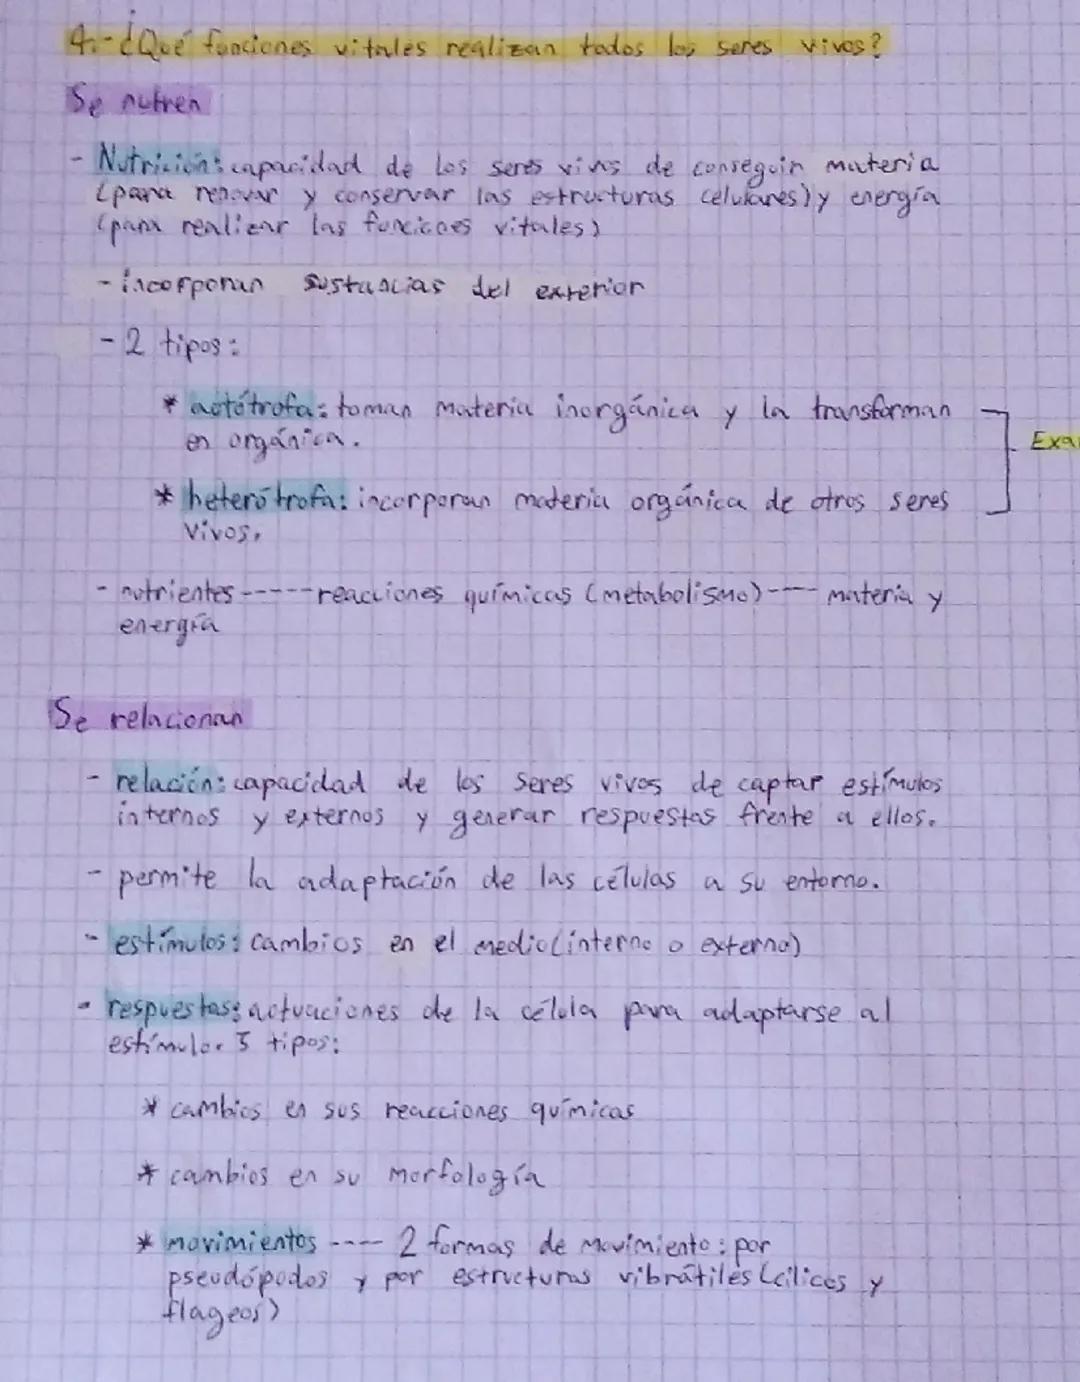 4.-¿Qué funciones vitales realizan todos los seres vivos?
Se nutren
- Nutrición: capacidad de los seres vivos de conseguir materia
(para renovar y conservar las estructuras celulares) y energía
(para realizar las funciones vitales)
- incorporan sustancias del exterior
- 2 tipos:
* autótrofa: toman materia inorgánica y la transforman
en orgánica.
Exa
* heterótrofa: incorporan materia orgánica de otros seres
vivos.
- nutrientes-----reacciones químicas (metabolismo)---- materia y
energía
Se relacionan
- relación: capacidad de los seres vivos de captar estímulos
internos y externos y generar respuestas frente a ellos.
- permite la adaptación de las células a su entorno.
- estímulos: cambios en el medio (interno o externo)
- respuestas: actuaciones de la célula para adaptarse al
estímulo. 3 tipos:
* cambios en sus reacciones químicas
* cambios en su morfología
* movimientos ---- 2 formas de movimiento: por
pseudópodos y por estructuras vibrátiles (cilios y
flageos)